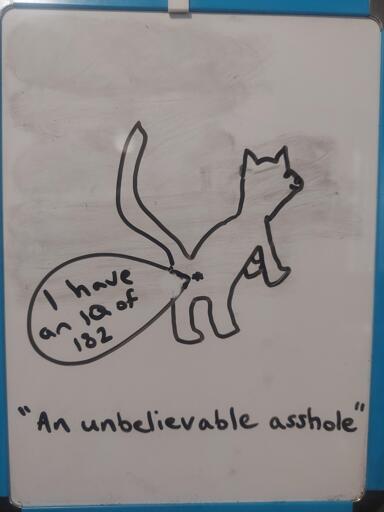 I have
an IQ of
182
"An unbelievable asshole"